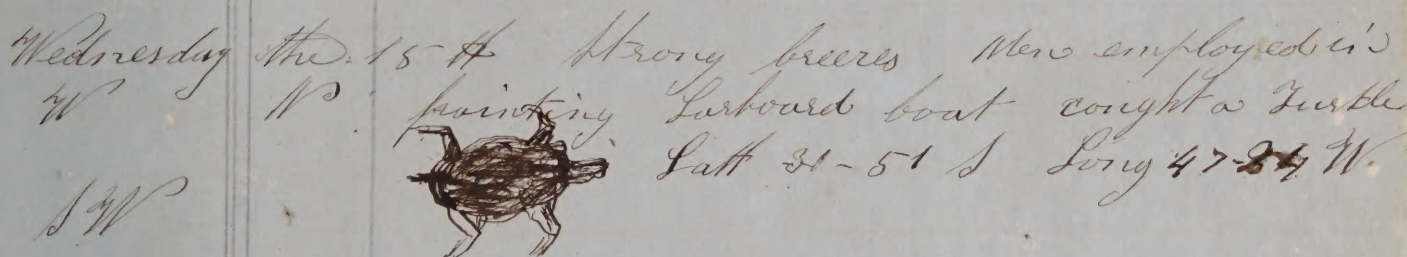 Wednesday the 15th Strong breeres Men employed in
W W painting Larboard boat cought a Turkle
Latt 31-51 S Long 47-24 W.
S W